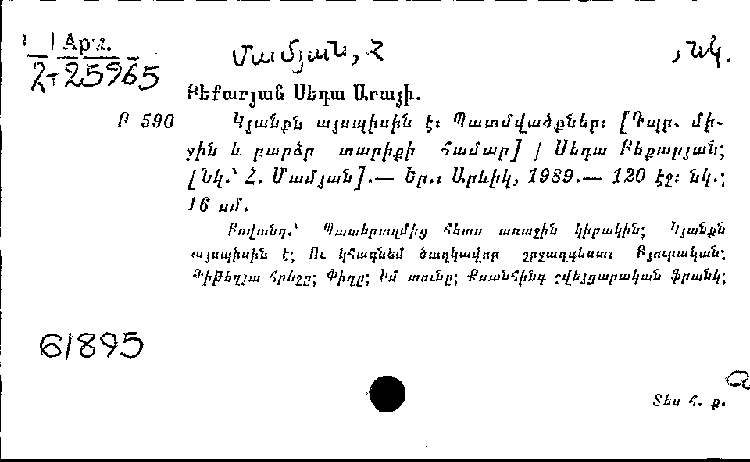 Արտ.
2-25965
Մամյան, Հ
, նկ.
Բեքարյան Սեդա Արայի.
Բ 590
Կյանքն այսպիսին է: Պատմվածքներ: [Դպր. մի-
ջին և բարձր տարիքի համար] / Սեդա Բեքարյան;
[նկ.՝ Հ. Մամյան].— Եր.: Արևիկ, 1989.— 120 էջ: նկ.;
16 սմ.
Բովանդ.՝ Պատերազմից հետո առաջին կիրակին; Կյանքն
այսպիսին է; Ու կհագնեմ ծաղկավոր շրջազգեստ: Բյուրական;
հրեշը; Փիղը; Իմ տունը; Քսանհինգ շվեյցարական ֆրանկ;
61895
Տես հ. ք.